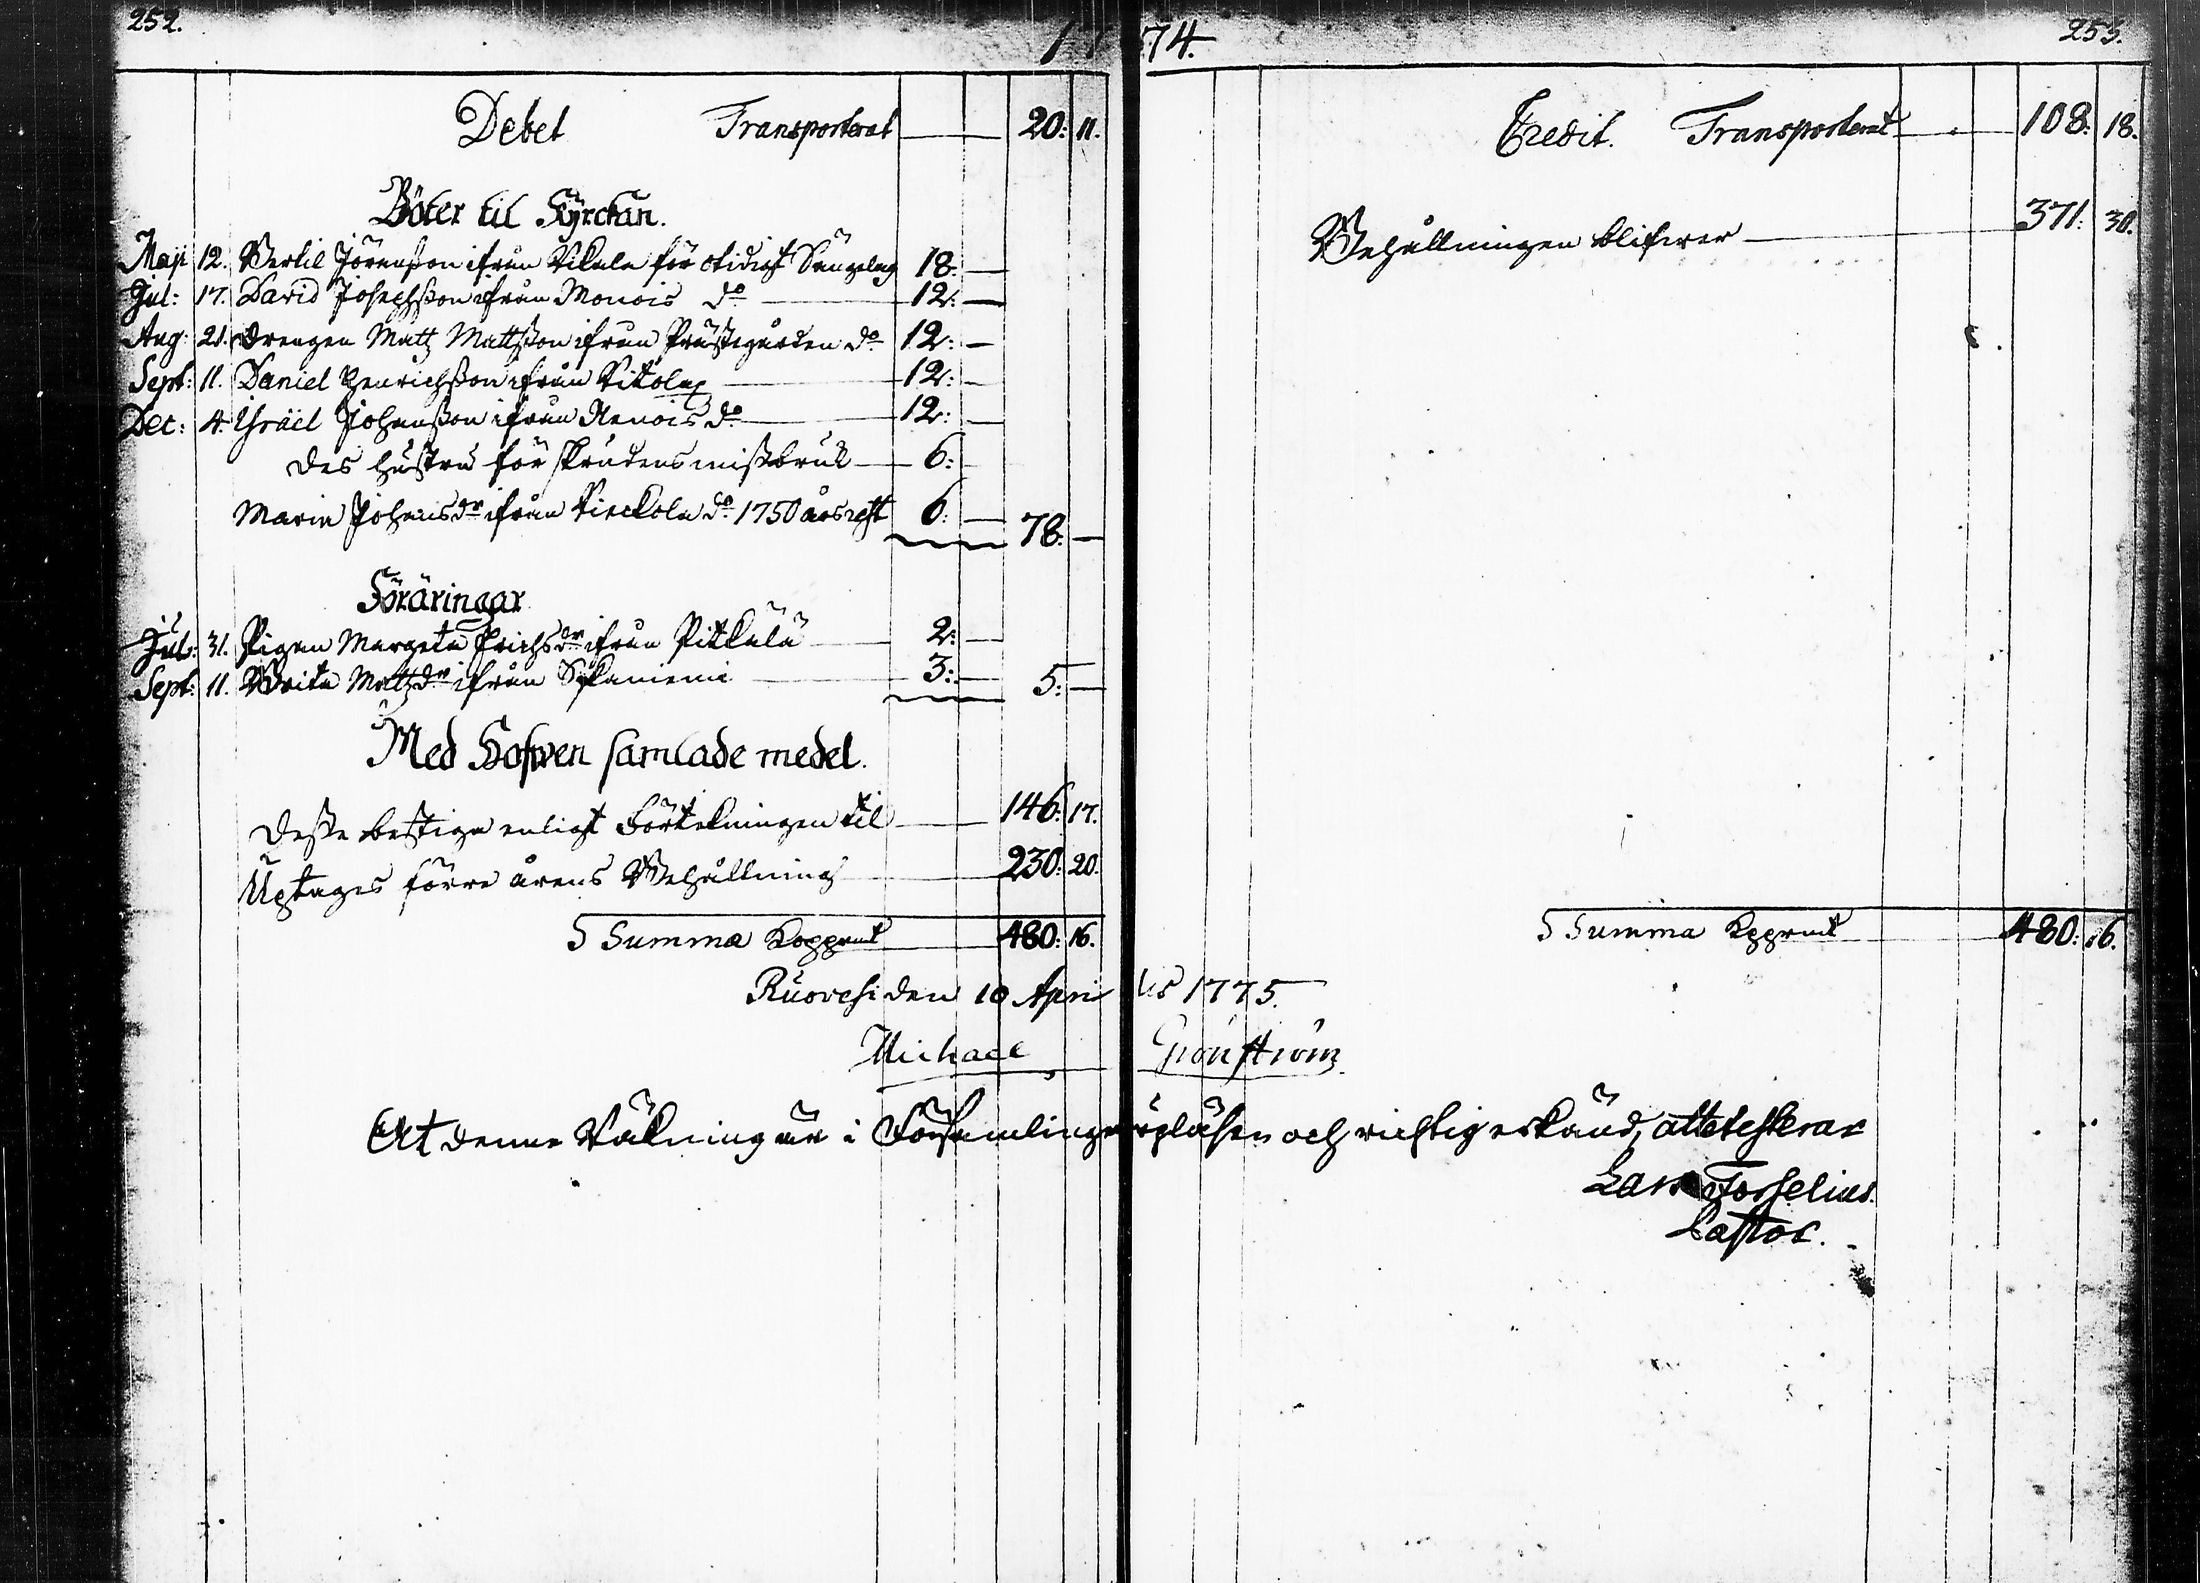 252.
1774.
253.
Debet Transporterat 20: 11.
Böter til Kyrckan.
Maji 12. Bertil Jöranßon ifrån Vikala för otidigt Sängelag 18: —
Jul: 17. David Josephßon ifrån Monois do 12: —
Aug: 21. Drengen Matz Mattßon ifrån Prästegården do 12: —
Sept: 11. Daniel Henrichßon ifrån 12: —
Dec: 4. Israel Johanßon ifrån do 12: —
Des hustru för skrudens mißbruk 6:
Maria Johansdr ifrån do 1750 års rest 6: — 78: —
Föräringar
Jul: 31. Pigan Margeta Erichsdr ifrån Pitkälä 2: —
Sept: 11. Brita Mattzdr ifrån 3: — 5: —
Med Hofwen samlade medel.
Deße bestiga enligt Förtekningen til 146: 17.
Uptages förre årens Behållning 230: 20.
S Summa Kopprmt 480: 16.
Credit. Transporterat 108: 18.
Behållningen blifwer 371: 30.
S Summa Kpprmt 480: 16.
Ruovesi den 10 Aprilis 1775.
Michael Grönström
At denne Räkning är i Församlingen opläsen och richtig erkänd, attetesterar
Lars Forselius.
Pastor.